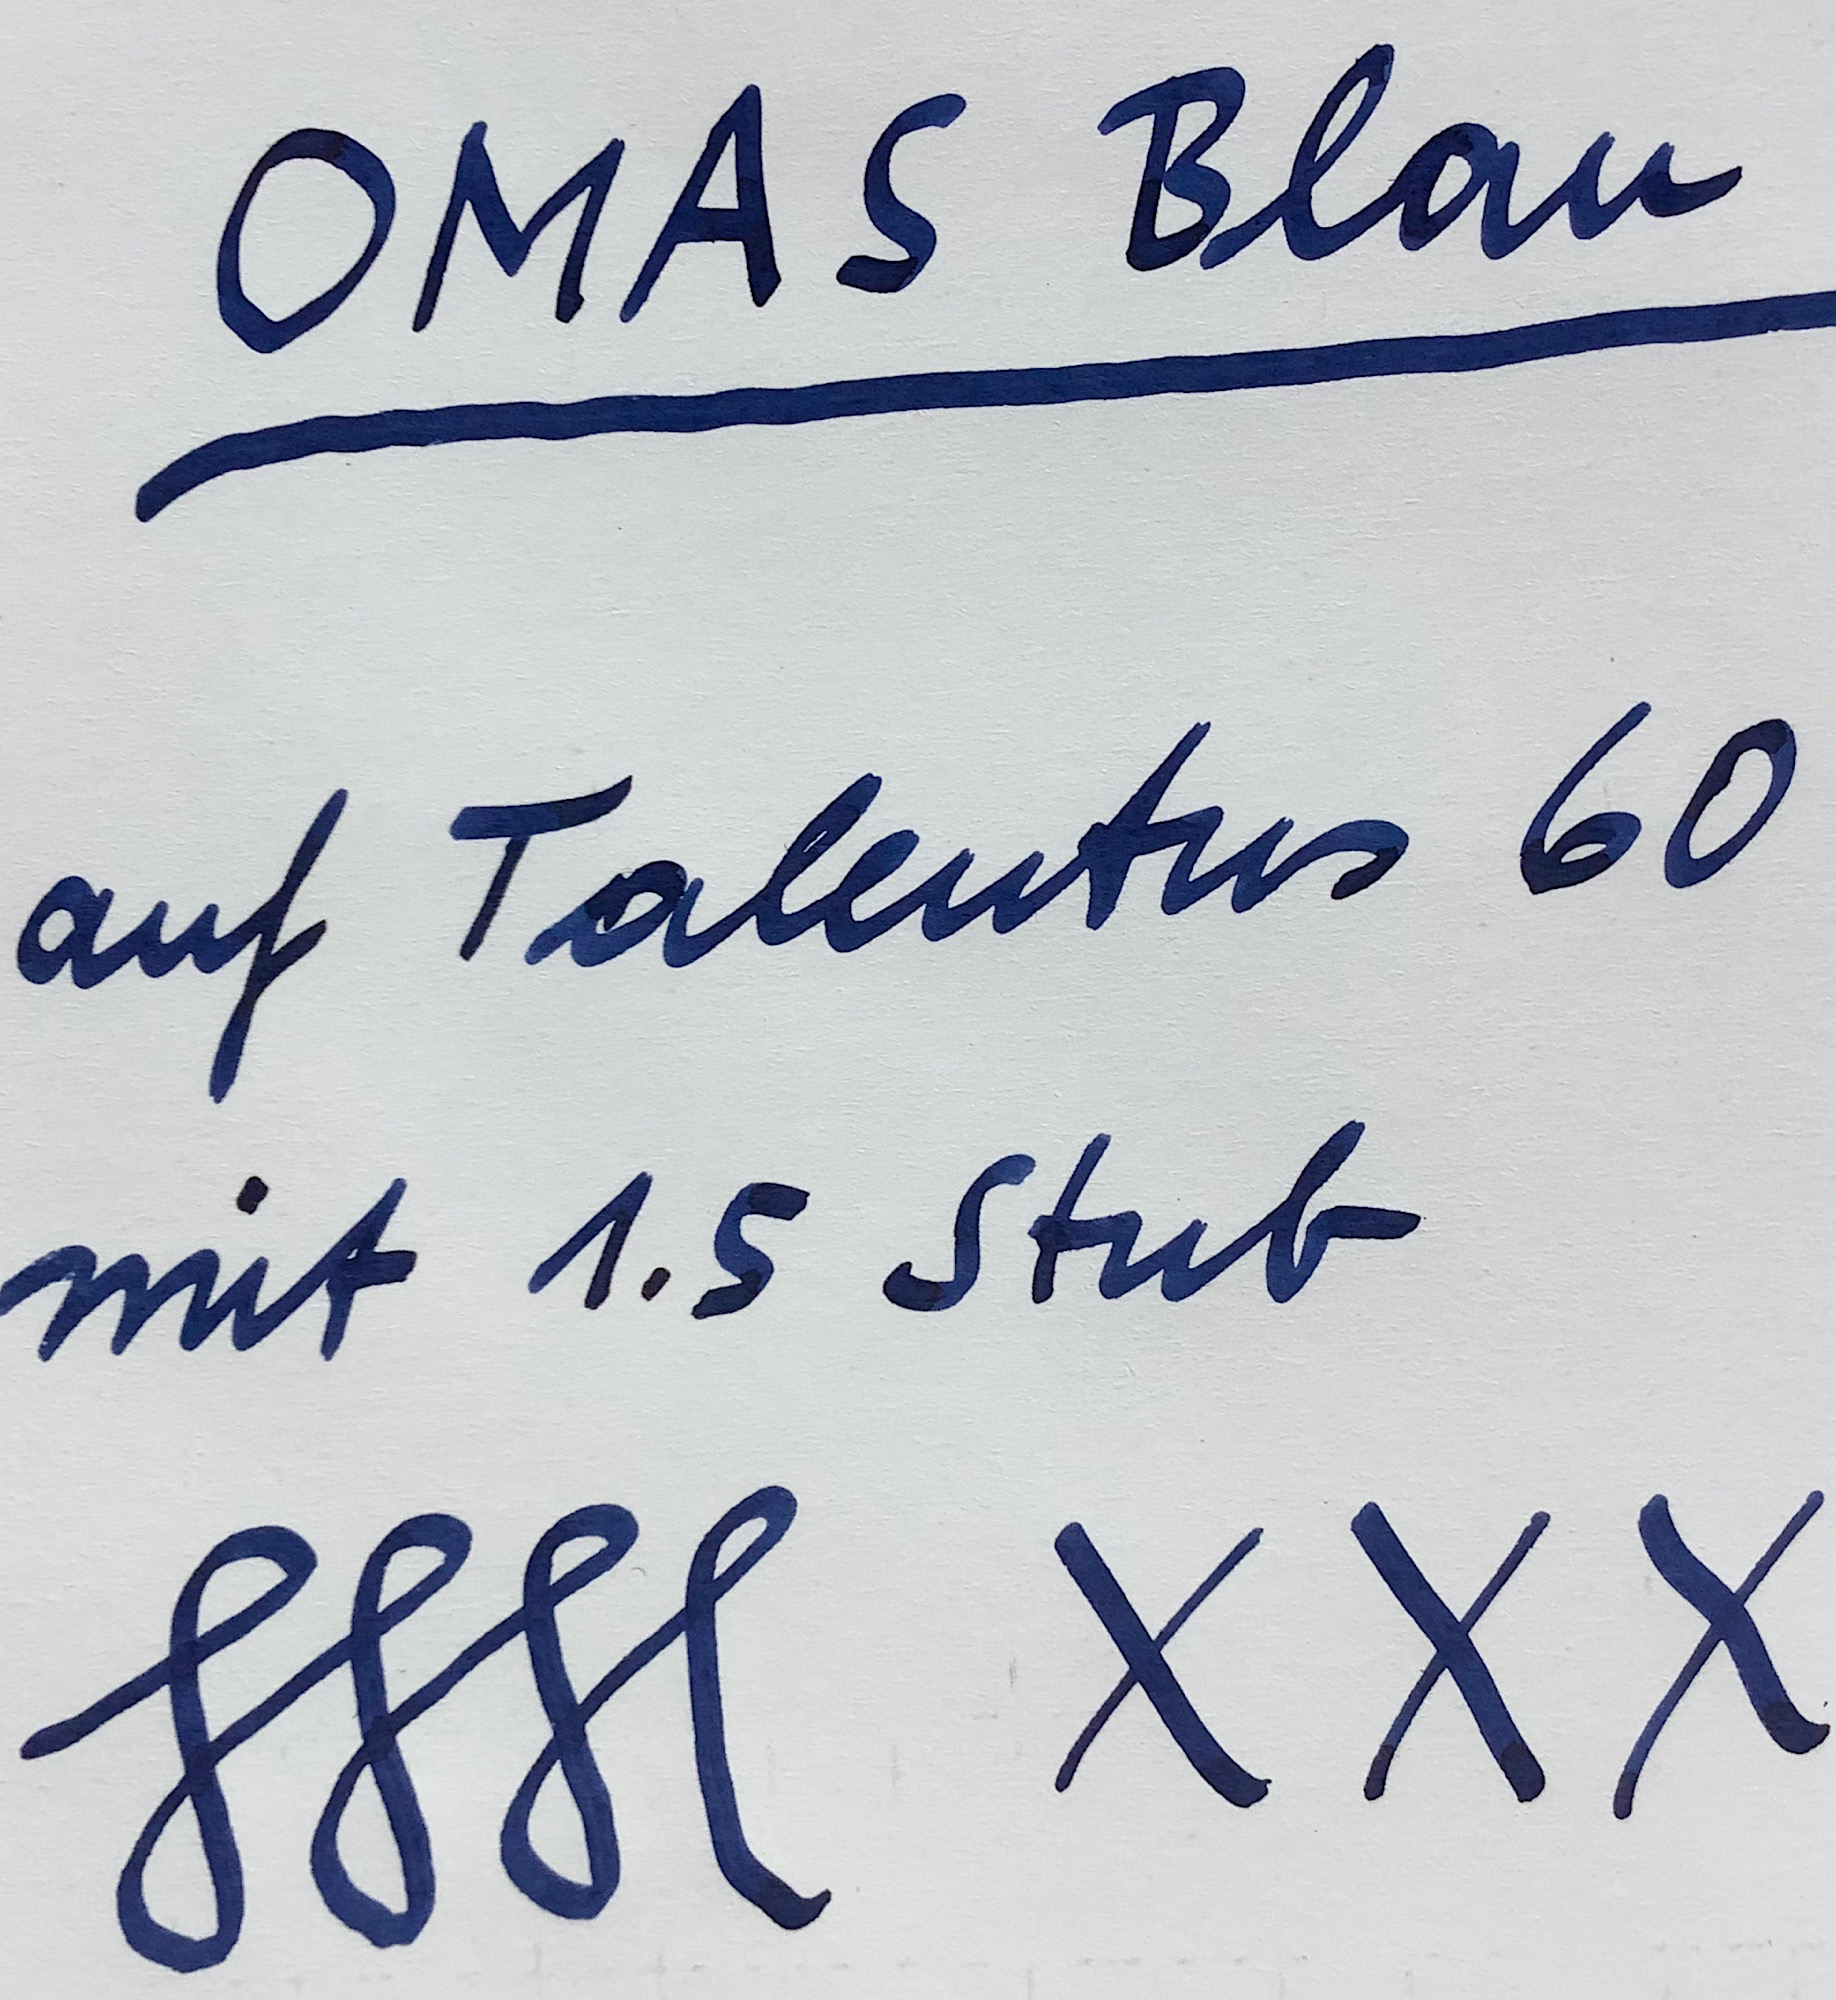 OMAS Blau
auf Talentus 60
mit 1.5 Stub
XXX